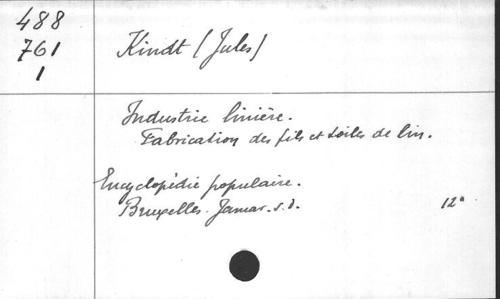 488
761
1
Kindt (Jules)
Industrie linière.
Fabrication des fils et toiles de lin.
Encyclopédie populaire.
Bruxelles. Jamar. s. d. 12°